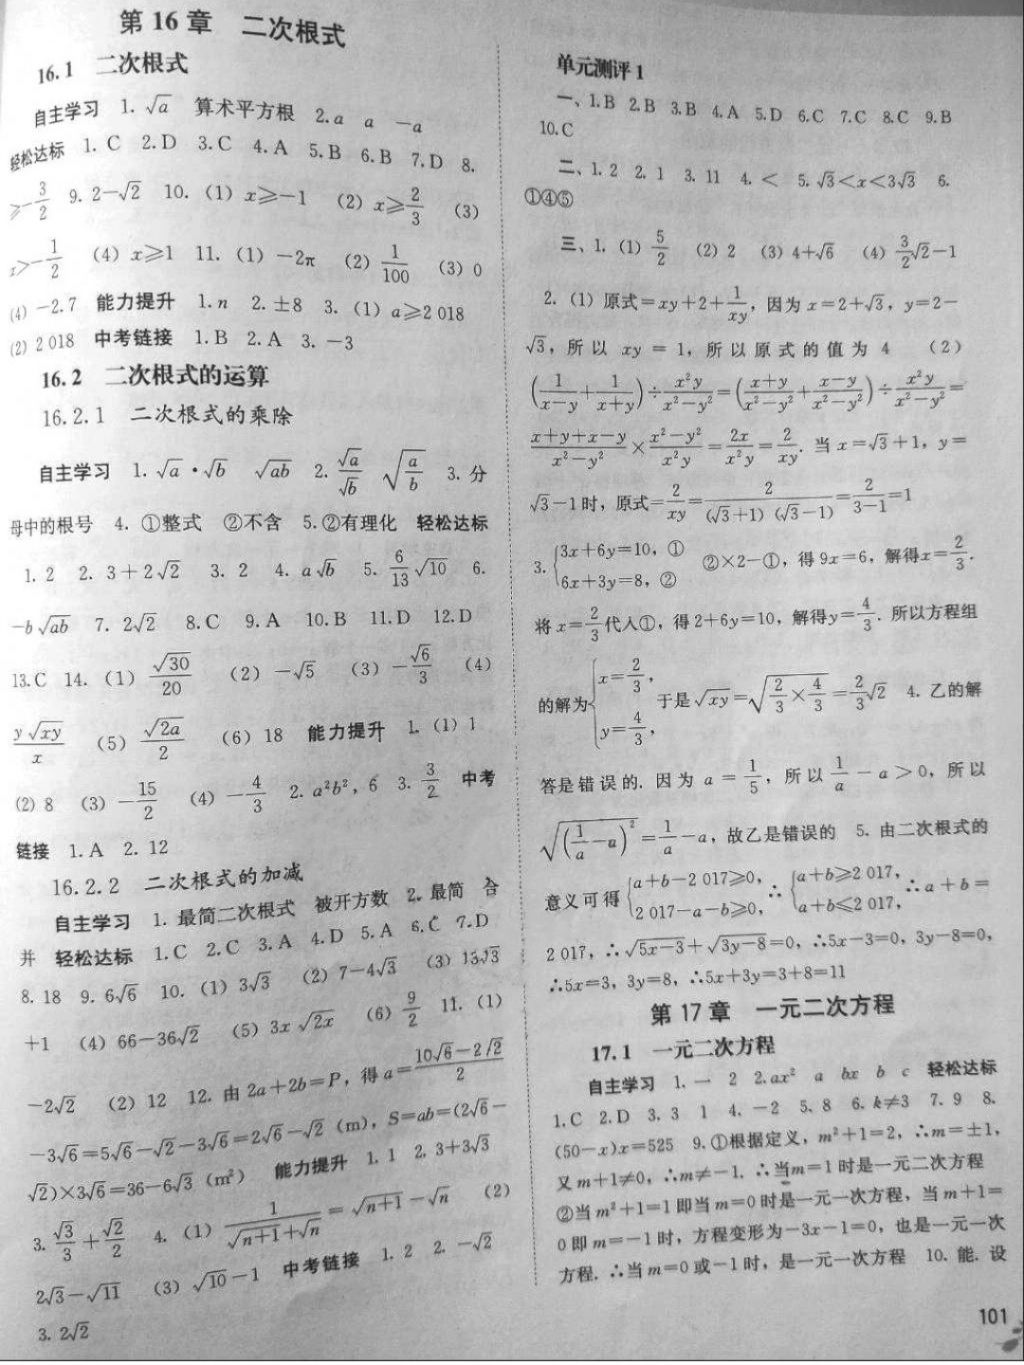 第 16 章 二次根式
16.1 二次根式
自主学习 1. √a 算术平方根 2. a a －a
轻松达标 1. C 2. D 3. C 4. A 5. B 6. B 7. D 8.
≥－3/2 9. 2－√2 10. (1) x≥－1 (2) x≥2/3 (3)
x>－1/2 (4) x≥1 11. (1) －2π (2) 1/100 (3) 0
(4) －2.7 能力提升 1. n 2. ±8 3. (1) a≥2 018
(2) 2 018 中考链接 1. B 2. A 3. －3
16.2 二次根式的运算
16.2.1 二次根式的乘除
自主学习 1. √a · √b √ab 2. √a/√b √(a/b) 3. 分
母中的根号 4. ①整式 ②不含 5. ②有理化 轻松达标
1. 2 2. 3＋2√2 3. 2 4. a√b 5. 6/13 √10 6.
－b√ab 7. 2√2 8. C 9. A 10. B 11. D 12. D
13. C 14. (1) √30/20 (2) －√5 (3) －√6/3 (4)
y√xy/x (5) √2a/2 (6) 18 能力提升 1. (1) 1
(2) 8 (3) －15/2 (4) －4/3 2. a²b², 6 3. 3/2 中考
链接 1. A 2. 12
16.2.2 二次根式的加减
自主学习 1. 最简二次根式 被开方数 2. 最简 合
并 轻松达标 1. C 2. C 3. A 4. D 5. A 6. C 7. D
8. 18 9. 6√6 10. (1) 3√3 (2) 7－4√3 (3) 13√3
＋1 (4) 66－36√2 (5) 3x√2x (6) 9/2 11. (1)
－2√2 (2) 12 12. 由 2a＋2b＝P，得 a＝(10√6－2√2)/2
－3√6＝5√6－√2－3√6＝2√6－√2 (m)，S＝ab＝(2√6－
√2)×3√6＝36－6√3 (m²) 能力提升 1. 1 2. 3＋3√3
3. √3/3＋√2/2 4. (1) 1/(√n＋1＋√n)＝√n＋1－√n (2)
2√3－√11 (3) √10－1 中考链接 1. 2 2. －√2
3. 2√2
单元测评 1
一、1. B 2. B 3. B 4. A 5. D 6. C 7. C 8. C 9. B
10. C
二、1. 2 2. 1 3. 11 4. < 5. √3<x<3√3 6.
①④⑤
三、1. (1) 5/2 (2) 2 (3) 4＋√6 (4) 3/2 √2－1
2. (1) 原式＝xy＋2＋1/xy，因为 x＝2＋√3，y＝2－
√3，所以 xy＝1，所以原式的值为 4 (2)
(1/(x－y)＋1/(x＋y))÷x²y/(x²－y²)＝((x＋y)/(x²－y²)＋(x－y)/(x²－y²))÷x²y/(x²－y²)＝
(x＋y＋x－y)/(x²－y²)×(x²－y²)/x²y＝2x/x²y＝2/xy. 当 x＝√3＋1，y＝
√3－1 时，原式＝2/xy＝2/((√3＋1)(√3－1))＝2/(3－1)＝1
3. {3x＋6y＝10，① 6x＋3y＝8，② ②×2－①，得 9x＝6，解得x＝2/3.
将 x＝2/3代入①，得 2＋6y＝10，解得y＝4/3. 所以方程组
的解为{x＝2/3，y＝4/3，于是 √xy＝√(2/3×4/3)＝2/3 √2 4. 乙的解
答是错误的. 因为 a＝1/5，所以 1/a－a＞0，所以
√(1/a－a)²＝1/a－a，故乙是错误的 5. 由二次根式的
意义可得{a＋b－2 017≥0，2 017－a－b≥0，∴{a＋b≥2 017，a＋b≤2 017，∴a＋b＝
2 017，∴√5x－3＋√3y－8＝0，∴5x－3＝0，3y－8＝0，
∴5x＝3，3y＝8，∴5x＋3y＝3＋8＝11
第 17 章 一元二次方程
17.1 一元二次方程
自主学习 1. 一 2 2. ax² a bx b c 轻松达标
1. C 2. D 3. 3 1 4. －2 5. 8 6. k≠3 7. 9 8.
(50－x)x＝525 9. ①根据定义，m²＋1＝2，∴m＝±1，
又 m＋1≠0，∴m≠－1. ∴当m＝1 时是一元二次方程
②当 m²＋1＝1 即当 m＝0 时是一元一次方程，当 m＋1＝
0 即 m＝－1 时，方程变形为－3x－1＝0，也是一元一次
方程. ∴当 m＝0 或－1 时，是一元一次方程 10. 能. 设
101